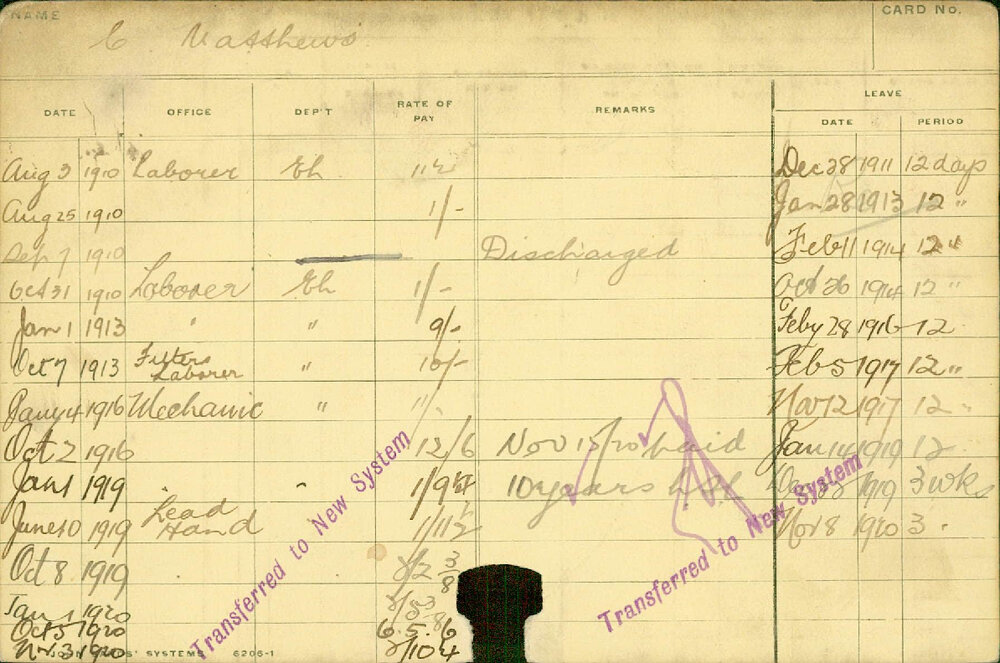 NAME C Matthews CARD No.
DATE OFFICE DEP'T RATE OF PAY REMARKS LEAVE
DATE PERIOD
Aug 3 1910 Laborer Eh Dec 28 1911 12 days
Aug 25 1910 1/- Jan 28 1913 12 "
Sep 7 1910 Discharged Feb 11 1914 12 "
Oct 31 1910 Laborer Eh 1/- Oct 26 1914 12 "
Jan 1 1913 " " 9/- Feby 28 1916 12
Oct 7 1913 Fitters Laborer " 10/- Feb 5 1917 12 "
Jany 4 1916 Mechanic " 11/- Nov 12 1917 12 "
Oct 2 1916 12/6 Nov 15/20 paid Jan 14 1919 12
Jan 1 1919 " 10 years 1919 3 wks
June 10 1919 Lead Hand Nov 8 1920 3 "
Oct 8 1919
Jan 1 1920
Oct 5 1920 6.5.6
Nov 3 1920
SYSTEMS 6206-1
Transferred to New System
Transferred to New System